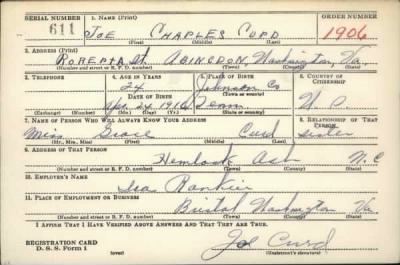 SERIAL NUMBER 1. NAME (Print) ORDER NUMBER
611 JOE CHARLES CURD 1906
(First) (Middle) (Last)
2. ADDRESS (Print)
ROBERTA St. ABINGDON, Washington, Va.
(Number and street or R. F. D. number) (Town) (County) (State)
3. TELEPHONE 4. AGE IN YEARS 5. PLACE OF BIRTH 6. COUNTRY OF CITIZENSHIP
24 Johnson Co
DATE OF BIRTH (Town or county)
Apr. 24 1916 Tenn. U.S.
(Exchange) (Number) (Mo.) (Day) (Yr.) (State or country)
7. NAME OF PERSON WHO WILL ALWAYS KNOW YOUR ADDRESS 8. RELATIONSHIP OF THAT PERSON
Miss Grace Curd sister
(Mr., Mrs., Miss) (First) (Middle) (Last)
9. ADDRESS OF THAT PERSON
Hemlock Ash N.C
(Number and street or R. F. D. number) (Town) (County) (State)
10. EMPLOYER'S NAME
Rankin
11. PLACE OF EMPLOYMENT OR BUSINESS
Bristol Washington Va
(Number and street or R. F. D. number) (Town) (County) (State)
I AFFIRM THAT I HAVE VERIFIED ABOVE ANSWERS AND THAT THEY ARE TRUE.
REGISTRATION CARD
D. S. S. Form 1 (over) Joe Curd
(Registrant's signature)